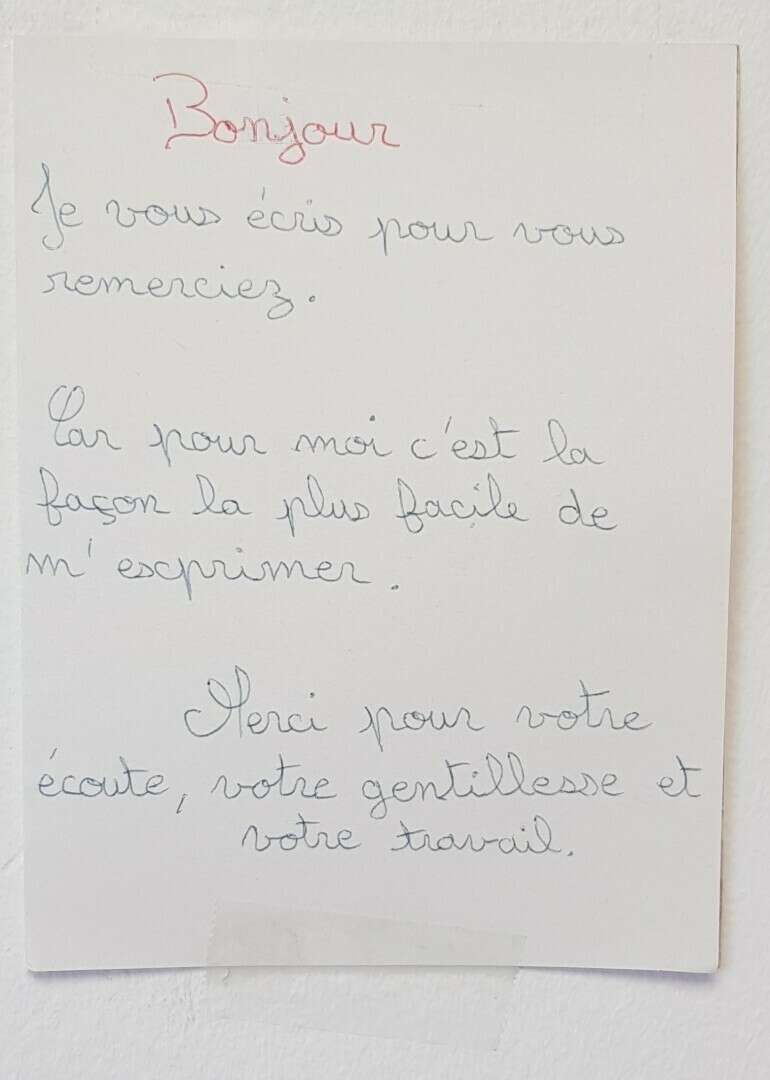 Bonjour
Je vous écris pour vous
remerciez.
Car pour moi c'est la
façon la plus facile de
m'exprimer.
Merci pour votre
écoute, votre gentillesse et
votre travail.